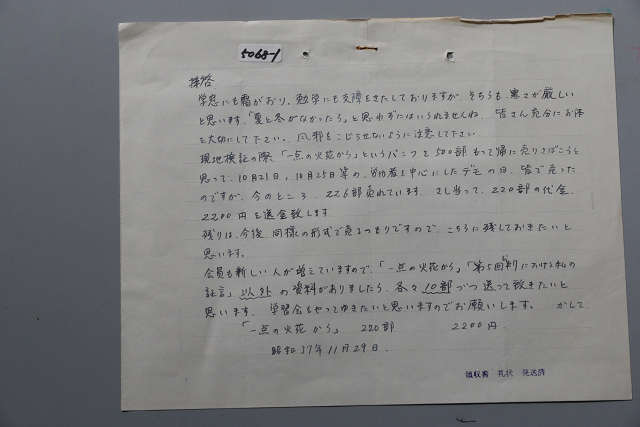 5068-1
拝啓
学窓にも霜がおり、勉学にも支障をきたしておりますが、そちらも寒さが厳しい
と思います。「夏と冬がなかったら」と思わずにはいられませんね。皆さん充分にお体
を大切にして下さい。風邪をこじらせないように注意して下さい。
現地検証の際、「一点の火花から」というパンフを500部もって帰り売りさばこうと
思って、10月21日、10月25日等の、労働者を中心にしたデモの日、皆で売った
のですが、今のところ、226部売れています。さし当って、220部の代金、
2200円を送金致します。
残りは、今後、同様の形式で売るつもりですので、こちらに残しておきたいと
思います。
会員も新しい人が増えていますので、「一点の火花から」「第5回公判における私の
証言」以外の資料がありましたら、各々10部づつ送って頂きたいと
思います。学習会もやってゆきたいと思いますのでお願いします。かしこ
「一点の火花から」 220部 2200円
昭和37年11月29日.
領収書 礼状 発送済